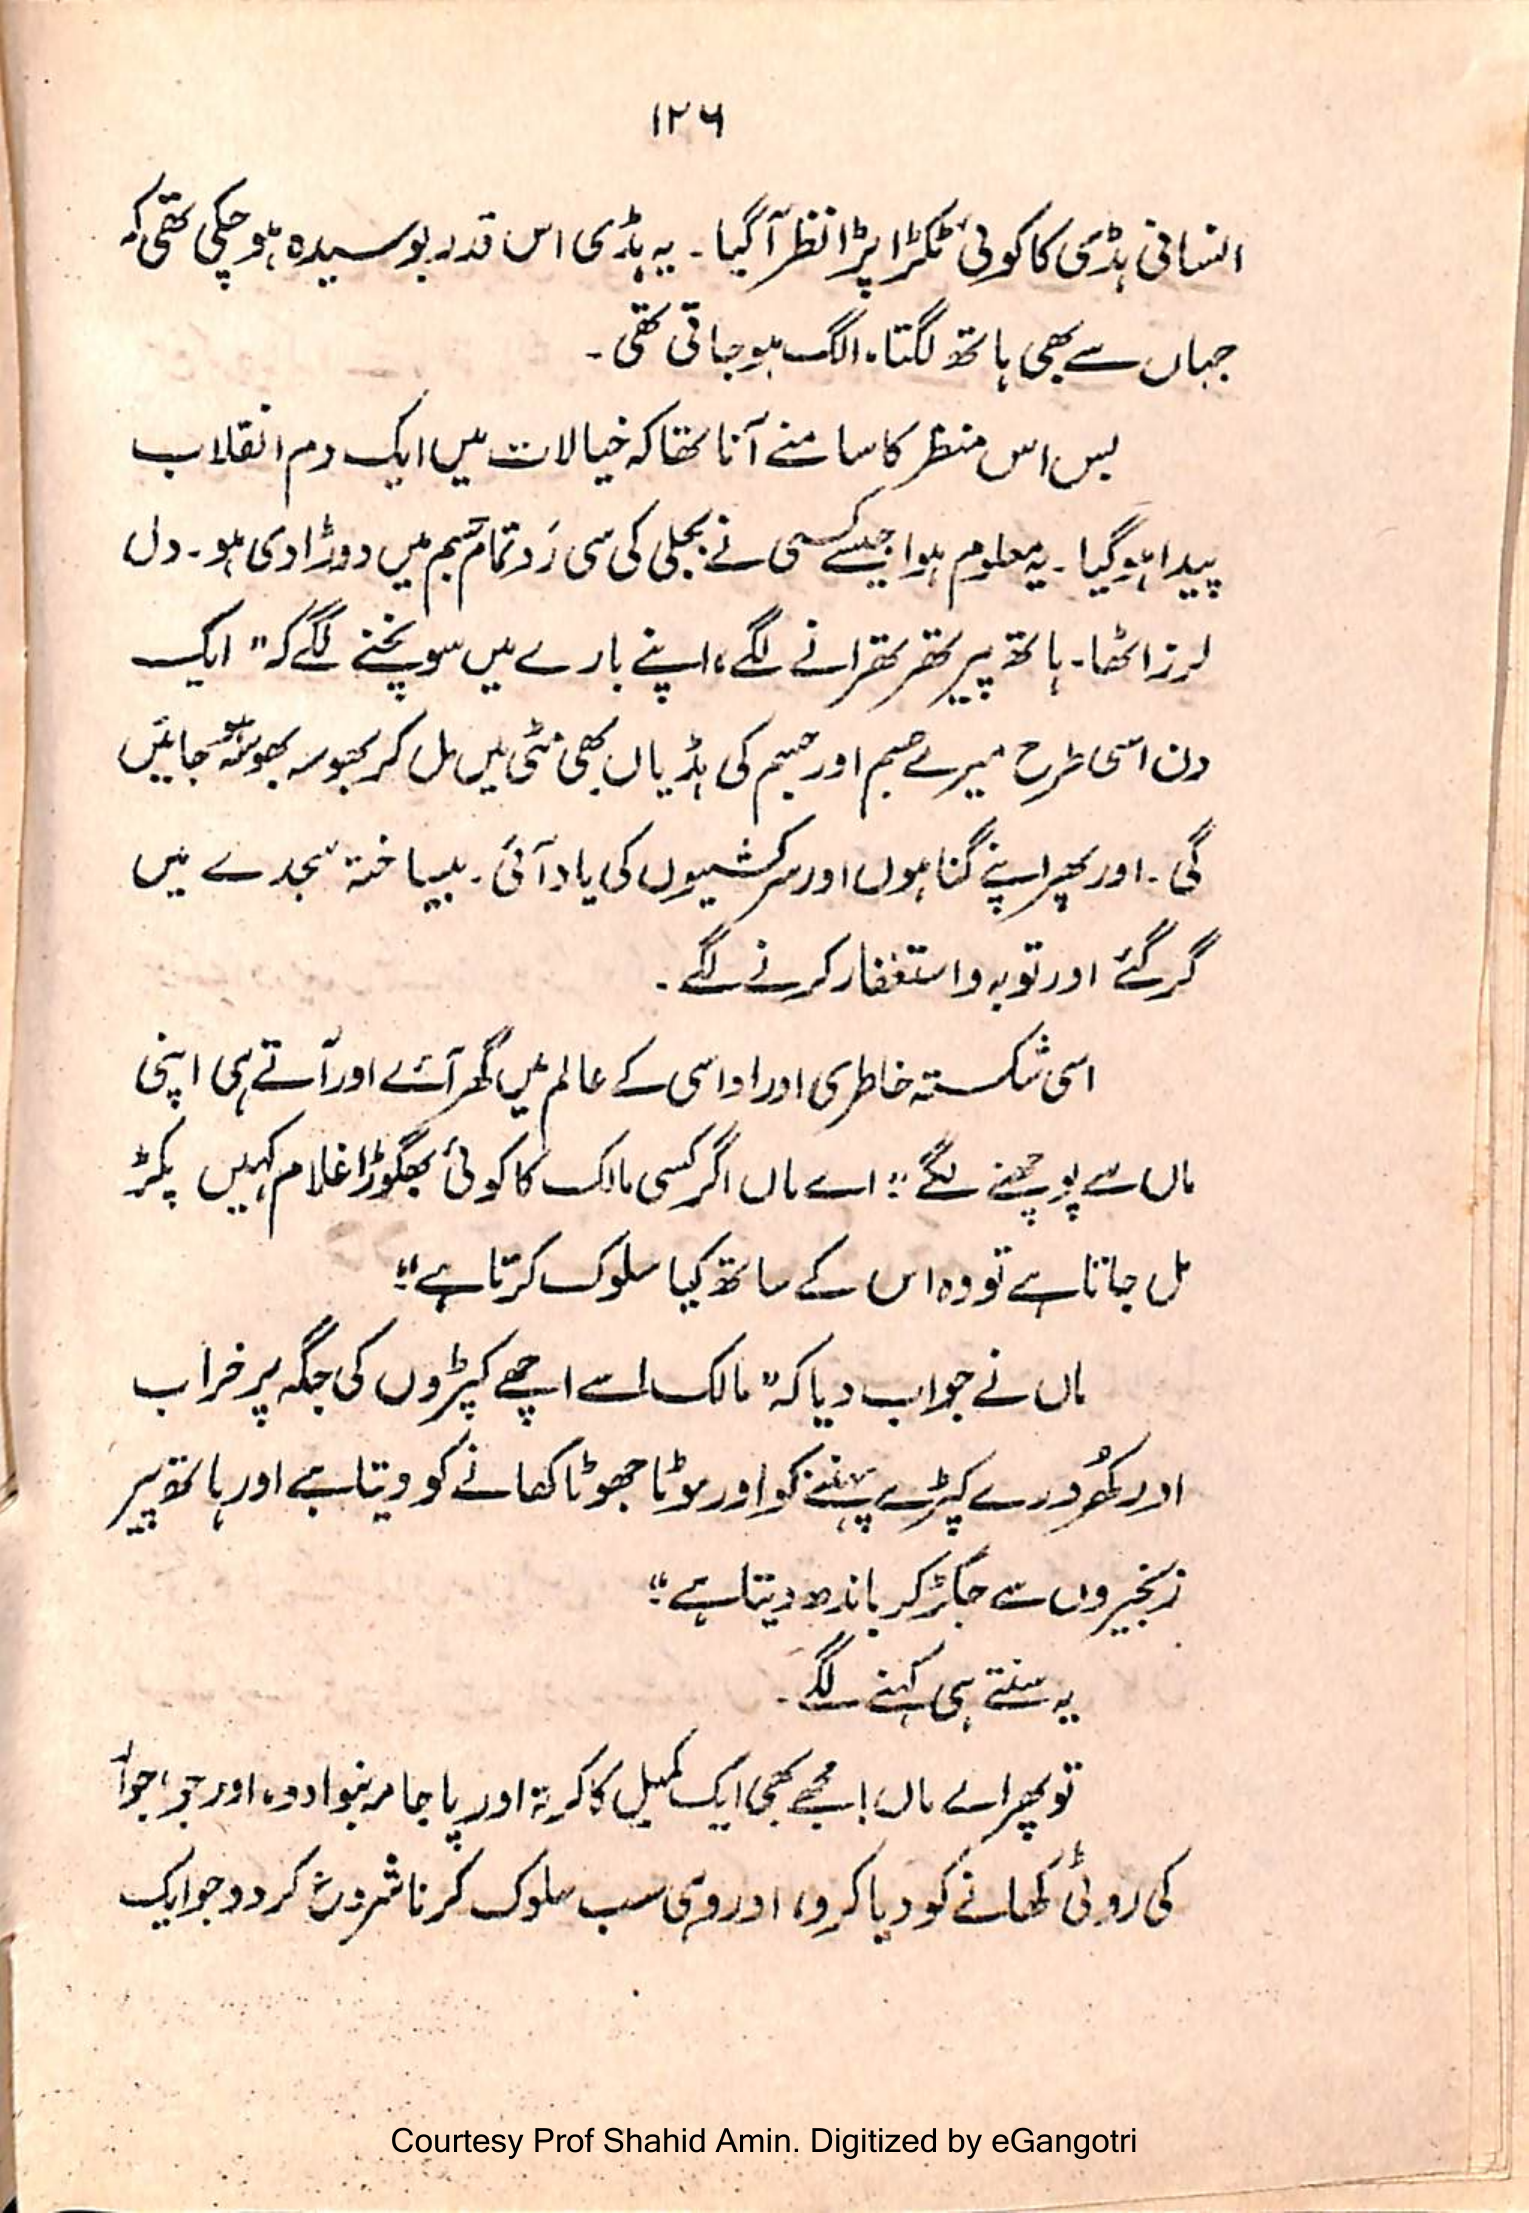 ۱۲۶
انسانی ہڈی کا کوئی ٹکڑا پڑا نظر آگیا۔ یہ ہڈی اس قدر بوسیدہ ہوچکی تھی کہ
جہاں سے بھی ہاتھ لگتا، الگ ہوجاتی تھی۔
بس اس منظر کا سامنے آنا تھا کہ خیالات میں ایک دم انقلاب
پیدا ہوگیا۔ یہ معلوم ہوا جیسے کسی نے بجلی کی سی رَو تمام جسم میں دوڑا دی ہو۔ دل
لرز اٹھا۔ ہاتھ پیر تھر تھرانے لگے، اپنے بارے میں سوچنے لگے کہ "ایک
دن اسی طرح میرے جسم اور جسم کی ہڈیاں بھی مٹی میں مل کر بھوسہ بھوسہ ہو جائیں
گی۔ اور پھر اپنے گناہوں اور سرکشیوں کی یاد آئی۔ بیساختہ سجدے میں
گر گئے اور توبہ و استغفار کرنے لگے۔
اسی شکستہ خاطری اور اداسی کے عالم میں گھر آئے اور آتے ہی اپنی
ماں سے پوچھنے لگے "اے ماں اگر کسی مالک کا کوئی بھگوڑا غلام کہیں پکڑ
مل جاتا ہے تو وہ اس کے ساتھ کیا سلوک کرتا ہے"
ماں نے جواب دیا کہ "مالک اسے اچھے کپڑوں کی جگہ پر خراب
اور کھُردرے کپڑے پہننے کو اور موٹا جھوٹا کھانے کو دیتا ہے اور ہاتھ پیر
زنجیروں سے جکڑ کر باندھ دیتا ہے"
یہ سنتے ہی کہنے لگے۔
تو پھر اے ماں! مجھے بھی ایک کمبل کا کرتہ اور پاجامہ بنوا دو، اور جو، جوار
کی روٹی کھانے کو دیا کرو، اور وہی سب سلوک کرنا شروع کر دو جو ایک
Courtesy Prof Shahid Amin. Digitized by eGangotri